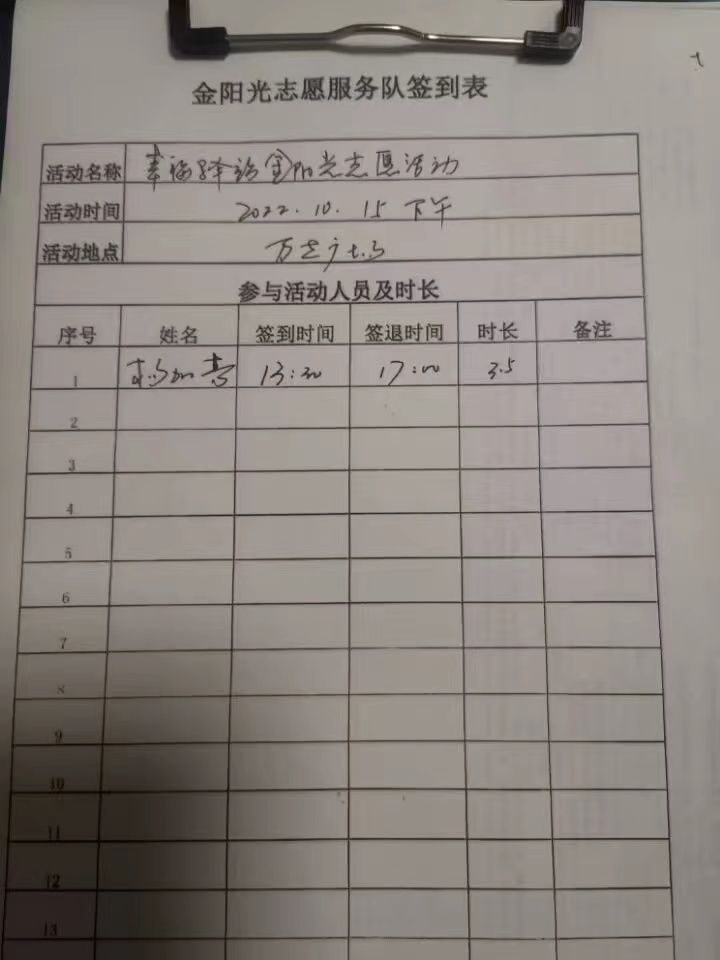 金阳光志愿服务队签到表
活动名称 幸福驿站金阳光志愿活动
活动时间 2022.10.15 下午
活动地点 万达广场
参与活动人员及时长
序号 姓名 签到时间 签退时间 时长 备注
1 13:30 17:00 3.5
2
3
4
5
6
7
8
9
10
11
12
13